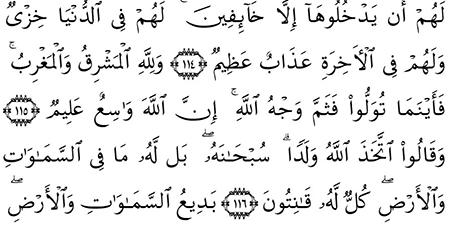 لَهُمْ أَن يَدْخُلُوهَآ إِلَّا خَآئِفِينَ ۚ لَهُمْ فِى ٱلدُّنْيَا خِزْىٌ
وَلَهُمْ فِى ٱلْأَخِرَةِ عَذَابٌ عَظِيمٌ ﴿١١٤﴾ وَلِلَّهِ ٱلْمَشْرِقُ وَٱلْمَغْرِبُ ۚ
فَأَيْنَمَا تُوَلُّوا۟ فَثَمَّ وَجْهُ ٱللَّهِ ۚ إِنَّ ٱللَّهَ وَٰسِعٌ عَلِيمٌ ﴿١١٥﴾
وَقَالُوا۟ ٱتَّخَذَ ٱللَّهُ وَلَدًا ۗ سُبْحَٰنَهُۥ ۖ بَل لَّهُۥ مَا فِى ٱلسَّمَٰوَٰتِ
وَٱلْأَرْضِ ۖ كُلٌّ لَّهُۥ قَٰنِتُونَ ﴿١١٦﴾ بَدِيعُ ٱلسَّمَٰوَٰتِ وَٱلْأَرْضِ ۖ